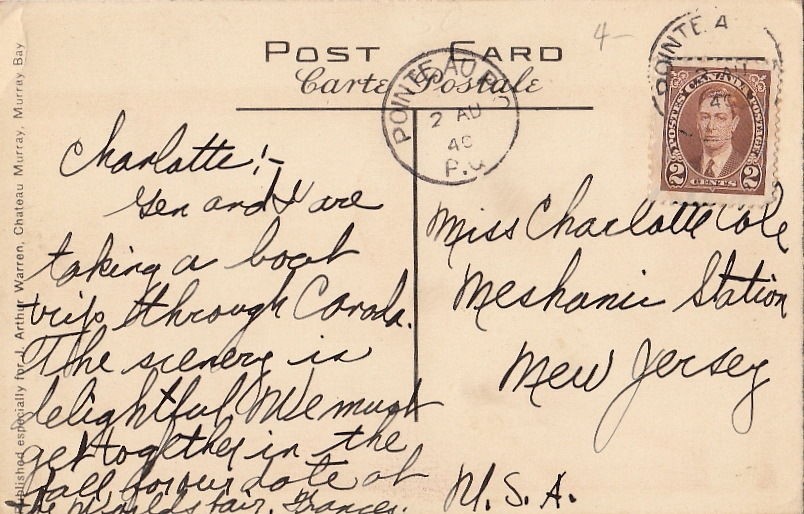 4-
POST CARD
Carte Postale
POINTE AU PIC
2 AU
40
P.Q
POINTE A
AU
40
POSTES CANADA POSTAGE
2 CENTS 2
Published especially for J. Arthur Warren, Chateau Murray, Murray Bay
Charlotte:-
Gen and I are
taking a boat
trip through Canada.
The scenery is
delightful. We must
get together in the
fall for our date at
the Worlds fair. Frances.
Miss Charlotte Cole
Neshanic Station
New Jersey
U.S.A.